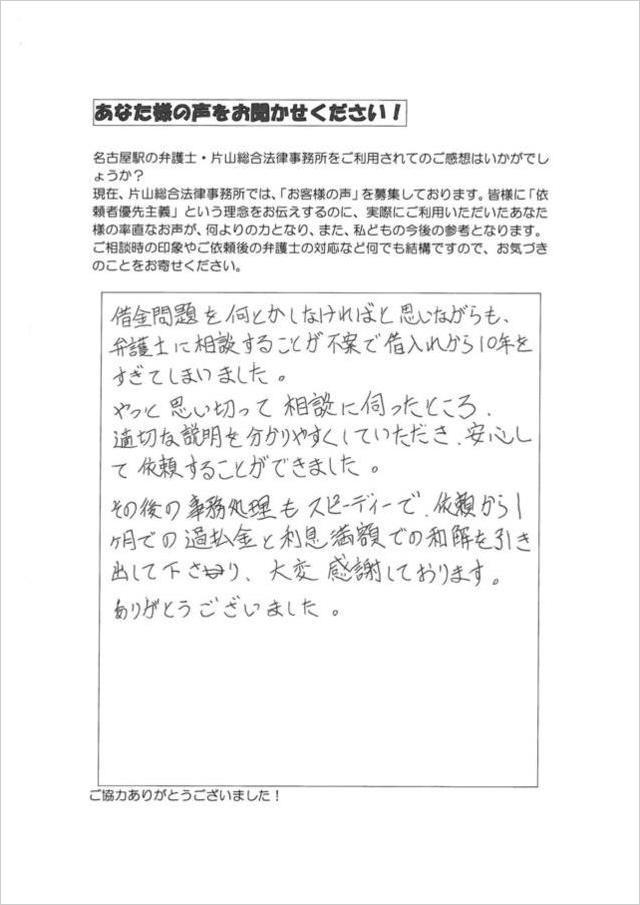 あなた様の声をお聞かせください！
名古屋駅の弁護士・片山総合法律事務所をご利用されてのご感想はいかがでし
ょうか？
現在、片山総合法律事務所では、「お客様の声」を募集しております。皆様に「依
頼者優先主義」という理念をお伝えするのに、実際にご利用いただいたあなた
様の率直なお声が、何よりの力となり、また、私どもの今後の参考となります。
ご相談時の印象やご依頼後の弁護士の対応など何でも結構ですので、お気づき
のことをお寄せください。
借金問題を何とかしなければと思いながらも、
弁護士に相談することが不案で借入れから10年を
すぎてしまいました。
やっと思い切って相談に伺ったところ、
適切な説明を分かりやすくしていただき、安心し
て依頼することができました。
その後の事務処理もスピーディーで、依頼から1
ヶ月での過払金と利息満額での和解を引き
出して下さり、大変感謝しております。
ありがとうございました。
ご協力ありがとうございました！